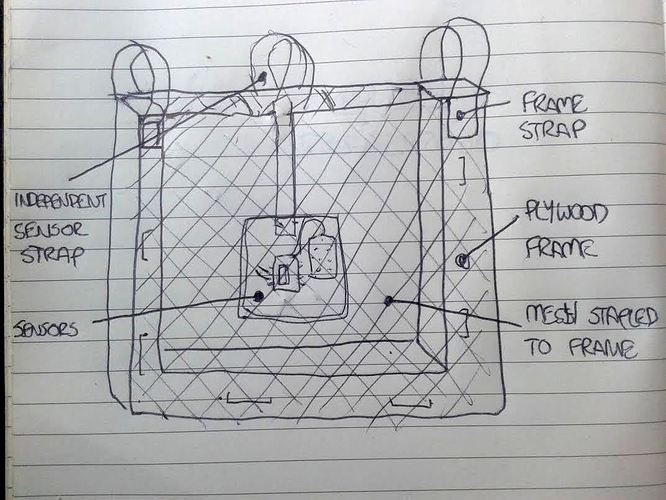 FRAME
STRAP
INDEPENDENT
SENSOR
STRAP
PLYWOOD
FRAME
SENSORS
MESH STAPLED
TO FRAME